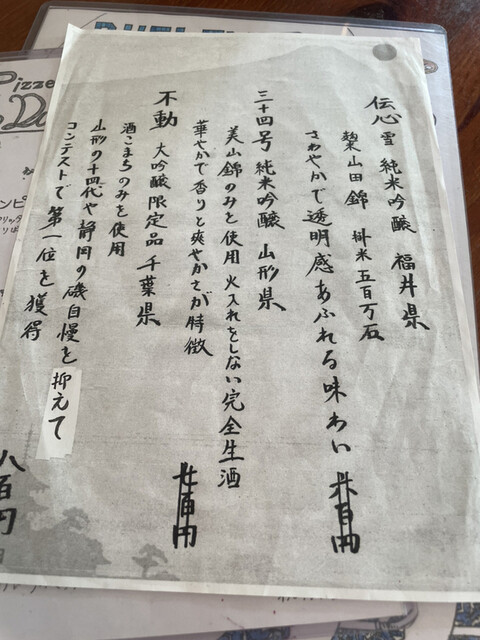 伝心 雪 純米吟醸 福井県
麹 山田錦 掛米 五百万石
さわやかで透明感あふれる味わい
三十四号 純米吟醸 山形県
美山錦のみを使用 火入れをしない完全生酒
華やかで香りと爽やかさが特徴
不動 大吟醸 限定品 千葉県
酒こまちのみを使用
山形の十四代や静岡の磯自慢を抑えて
コンテストで第一位を獲得
八百円
Pizze